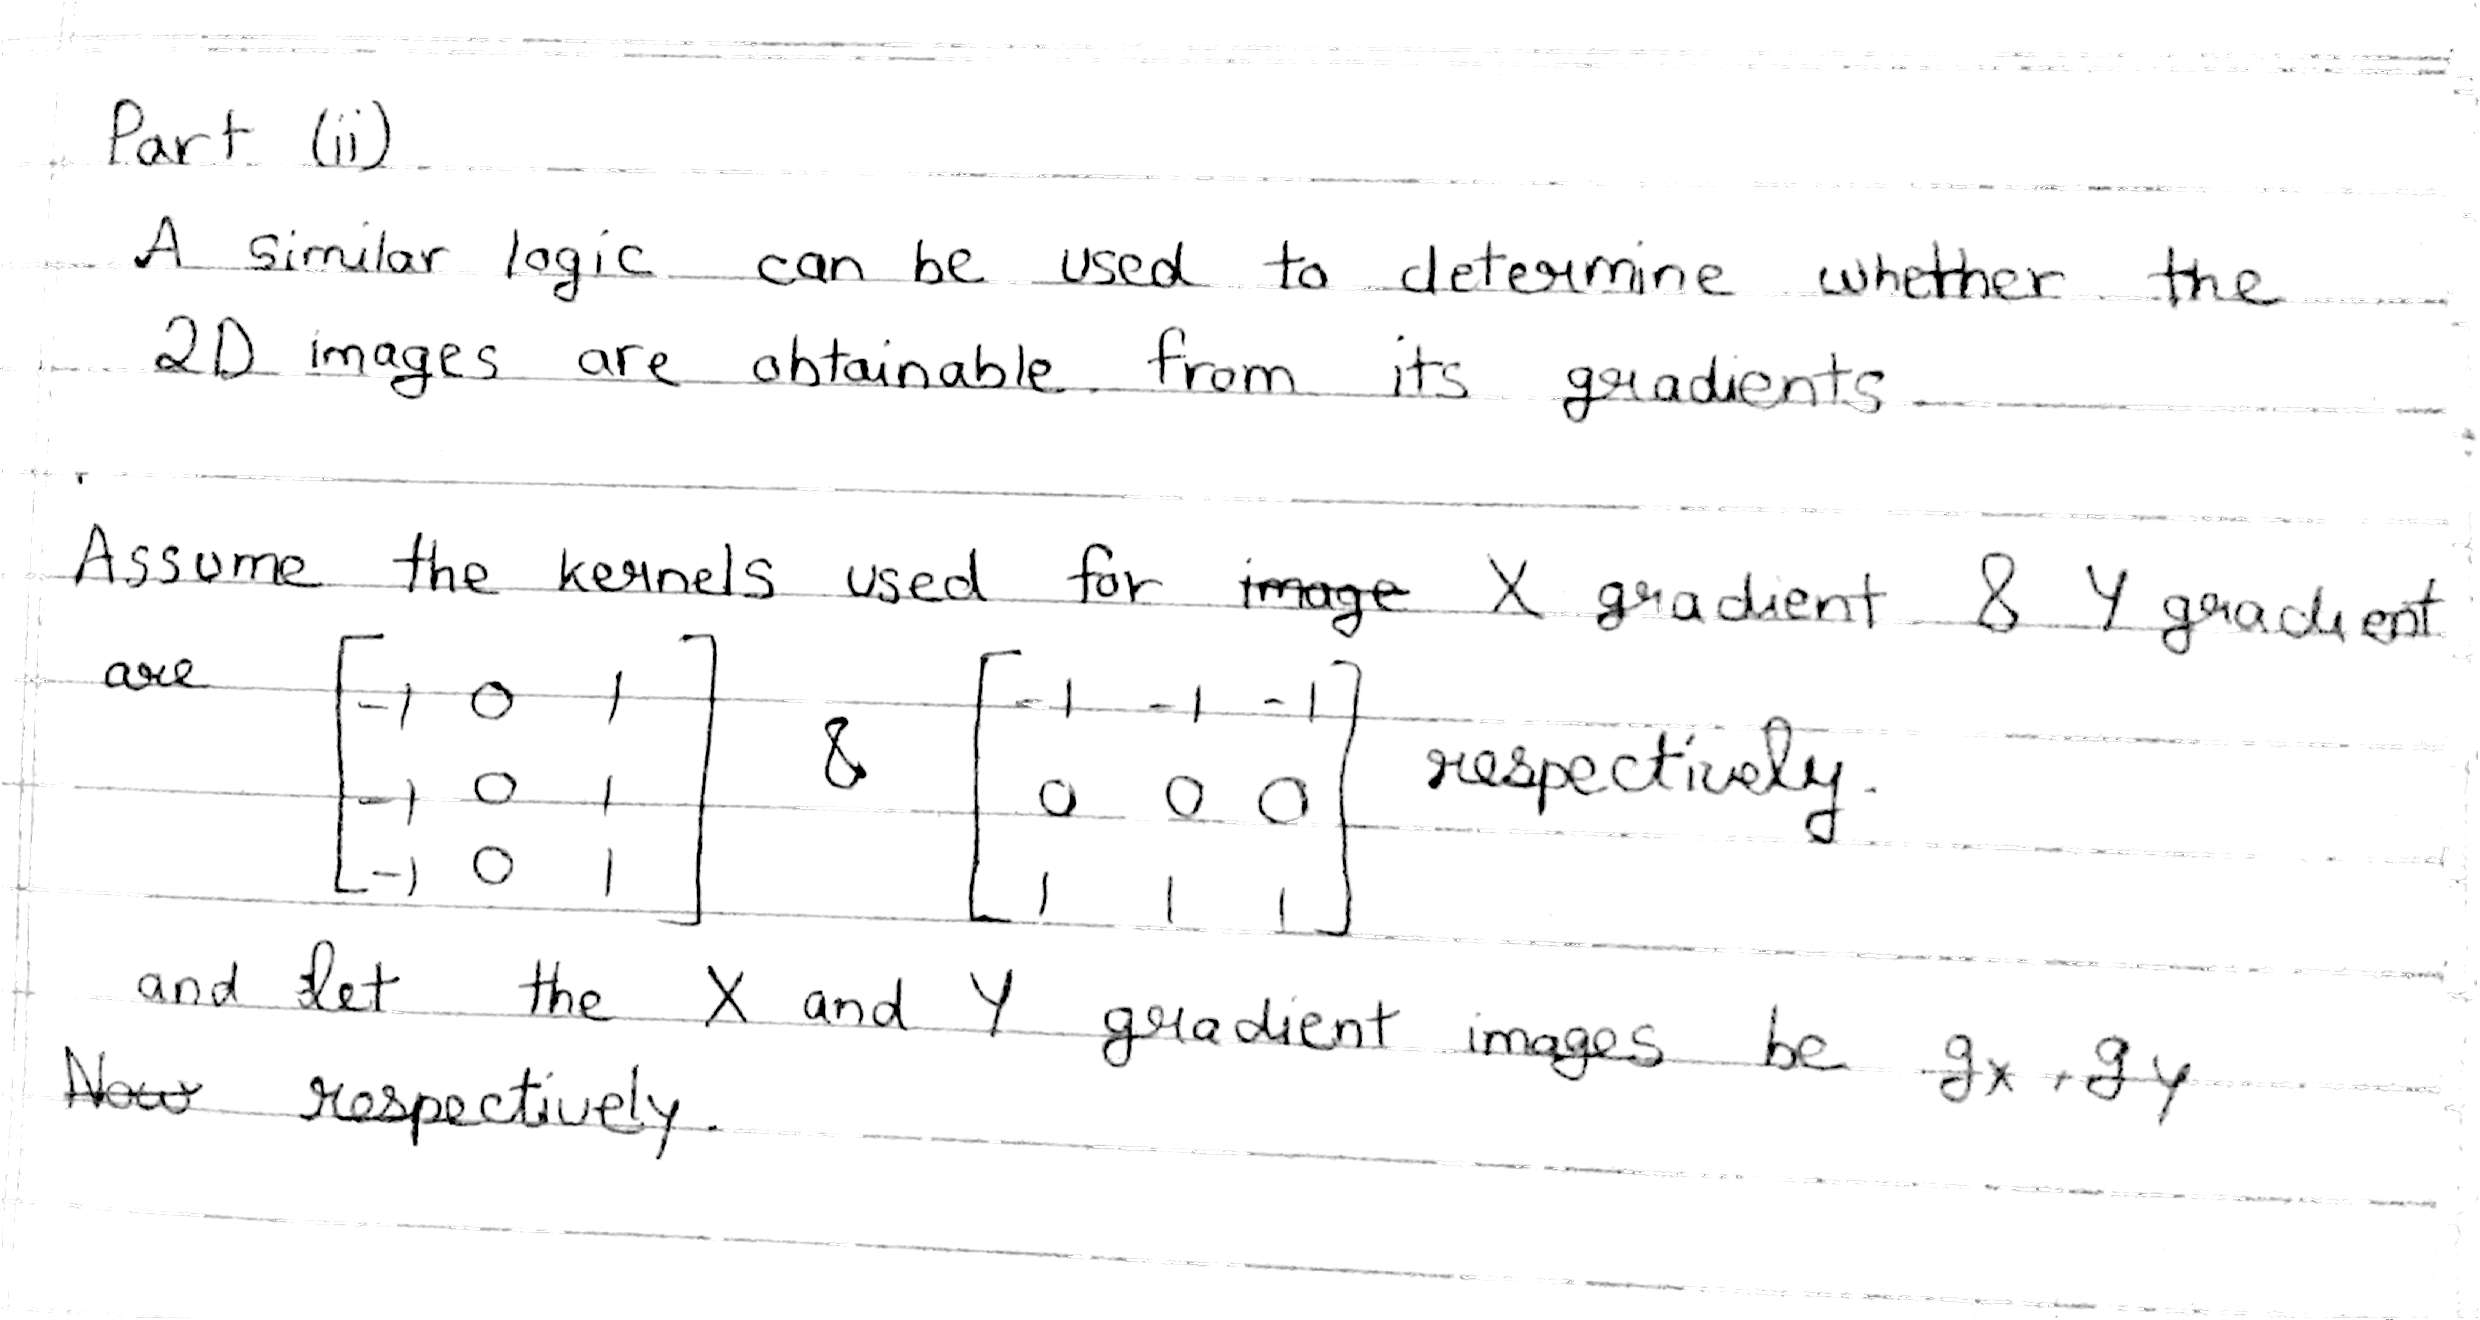 Part (ii)
A similar logic can be used to determine whether the
2D images are obtainable from its gradients
Assume the kernels used for ~~image~~ X gradient & Y gradient
are [-1 0 1; -1 0 1; -1 0 1] & [-1 -1 -1; 0 0 0; 1 1 1] respectively.
and let the X and Y gradient images be gx, gy
~~Now~~ respectively.